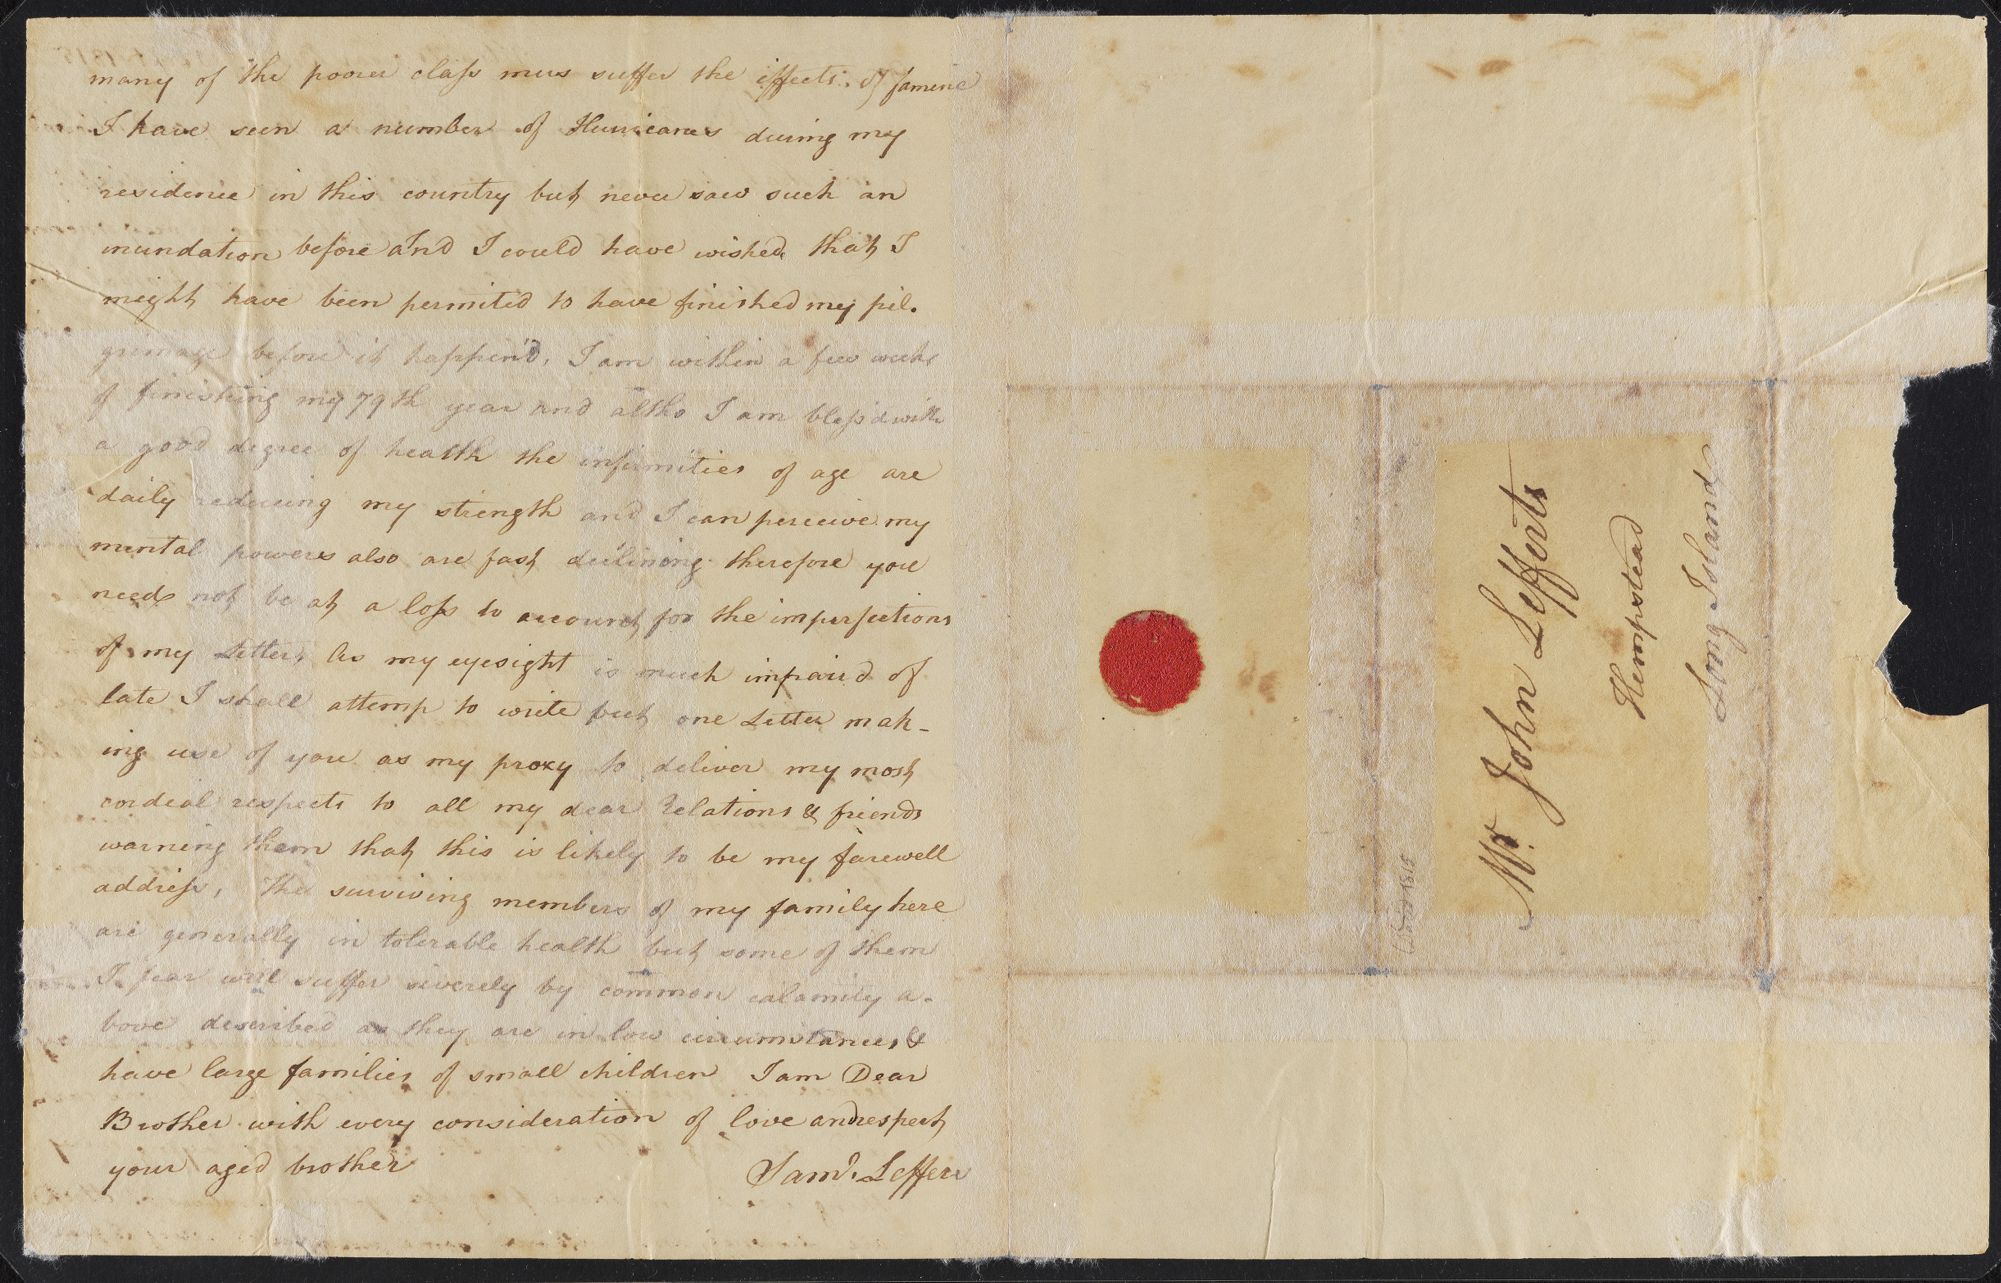 many of the poorer class mus suffer the effects of famine
I have seen a number of Hurricanes during my
residence in this country but never saw such an
inundation before and I could have wished that I
might have been permited to have finished my pil-
grimage before it happen'd, I am within a few weeks
of finishing my 79th year and altho I am bless'd with
a good degree of health the infirmities of age are
daily reducing my strength and I can perceive my
mental powers also are fast declining therefore you
needs not be at a loss to account for the imperfections
of my Letter, As my eyesight is much impair'd of
late I shall attemp to write but one Letter mak-
ing use of you as my proxy to deliver my most
cordeal respects to all my dear Relations & friends
warning them that this is likely to be my farewell
address, The surviving members of my family here
are generally in tolerable health but some of them
I fear will suffer severely by common calamity a-
bove described as they are in low circumstances &
have large families of small children I am Dear
Brother with every consideration of love and respect
your aged brother
Saml. Leffers
Mr. John Lefferts
Hempstead
Long Island
1815